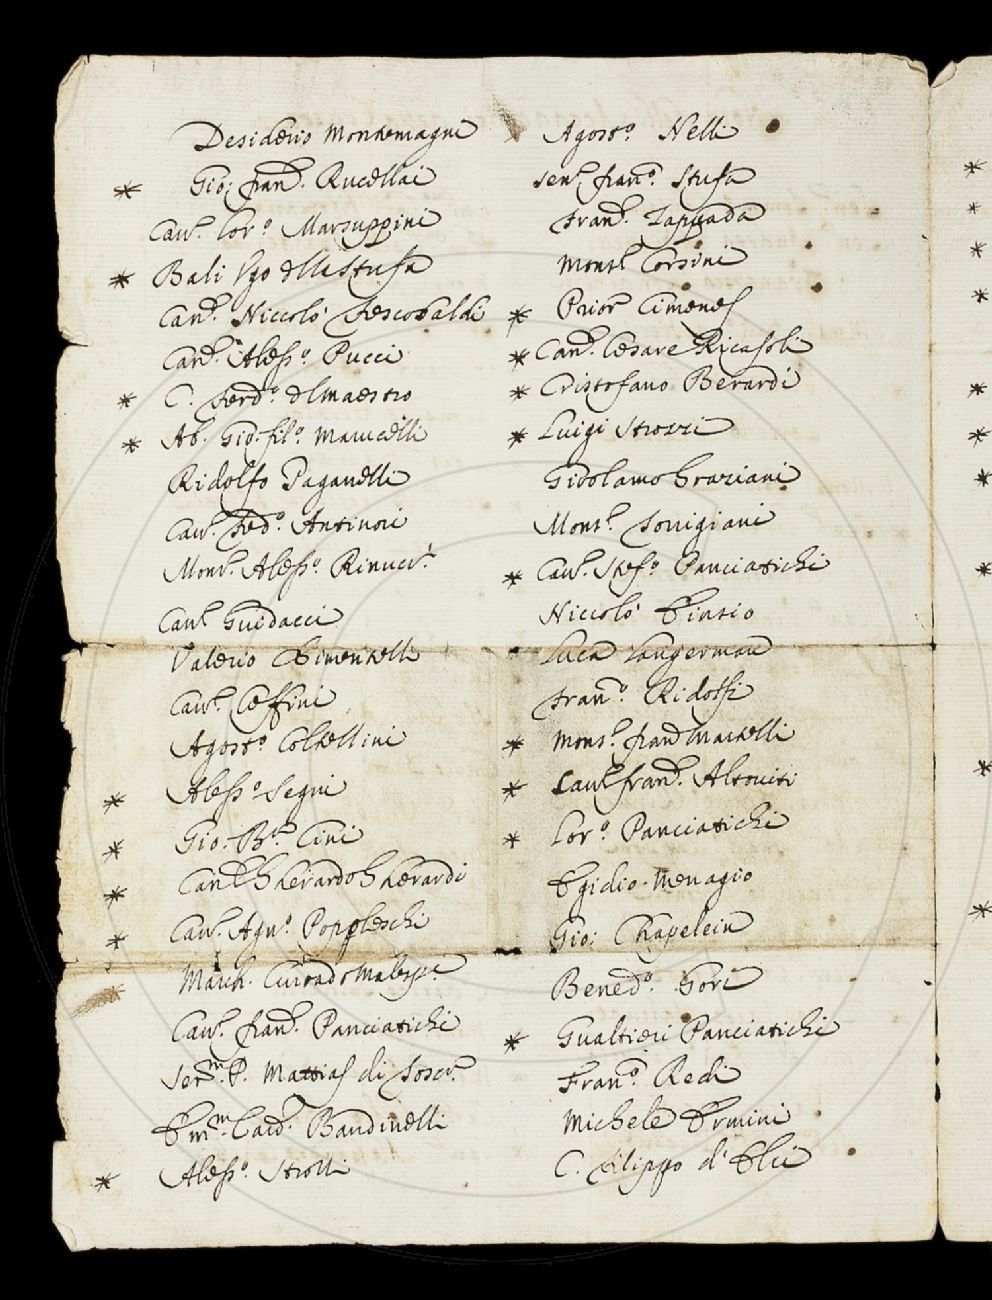 Desiderio Montemagni
* Gio: Fran.º Rucellai
Cav.r Lor.º Marsuppini
* Bali Ugo della Stufa
Can.co Niccolò Frescobaldi
Can.co Aless.º Pucci
* C. Ferd.º del Maestro
* Ab. Gio: fil.º Marucelli
Ridolfo Paganelli
Cav.r Antinori
Mons.r Aless.º Rinucc.i
Cav.r Guidacci
Valerio Chimentelli
Cav.r Ceffini
Agost.º Coltellini
* Aless.º Segni
* Gio: B.ta Cini
* Can.co Gherardo Gherardi
* Cav.r Agn.º Popoleschi
March. Malesp.ª
Cav.r Fran.co Panciatichi
Ser.mo P. Mattias di Tosc.ª
Em.mo Card. Bandinelli
* Aless.º Strozzi
Agost.º Nelli
Sen.r Fran.º Stufa
Fran.co
Mons.r Corsini
* Prior Cimenes
* Can.co Cesare Ricasoli
* Cristofano Berardi
* Luigi Strozzi
Girolamo Graziani
Mons.r
* Cav.r Stef.º Panciatichi
Niccolò Einsio
Luca Langerman
Fran.º Ridolfi
* Mons.r
* Cav.r Fran.co Altoviti
* Lor.º Panciatichi
Egidio Menagio
Gio: Chapelein
Bened.º Gori
* Gualtieri Panciatichi
Fran.º Redi
Michele Ermini
C. Filippo d'Elci